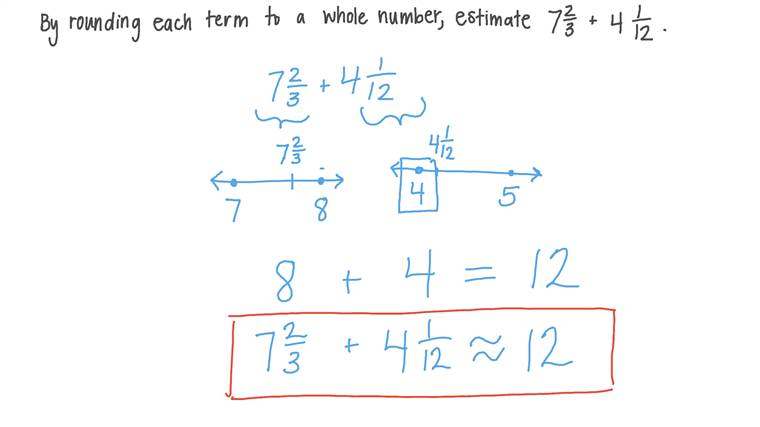 By rounding each term to a whole number, estimate 7 2/3 + 4 1/12 .
7 2/3 + 4 1/12
7 2/3 4 1/12
7 8 4 5
8 + 4 = 12
7 2/3 + 4 1/12 ≈ 12